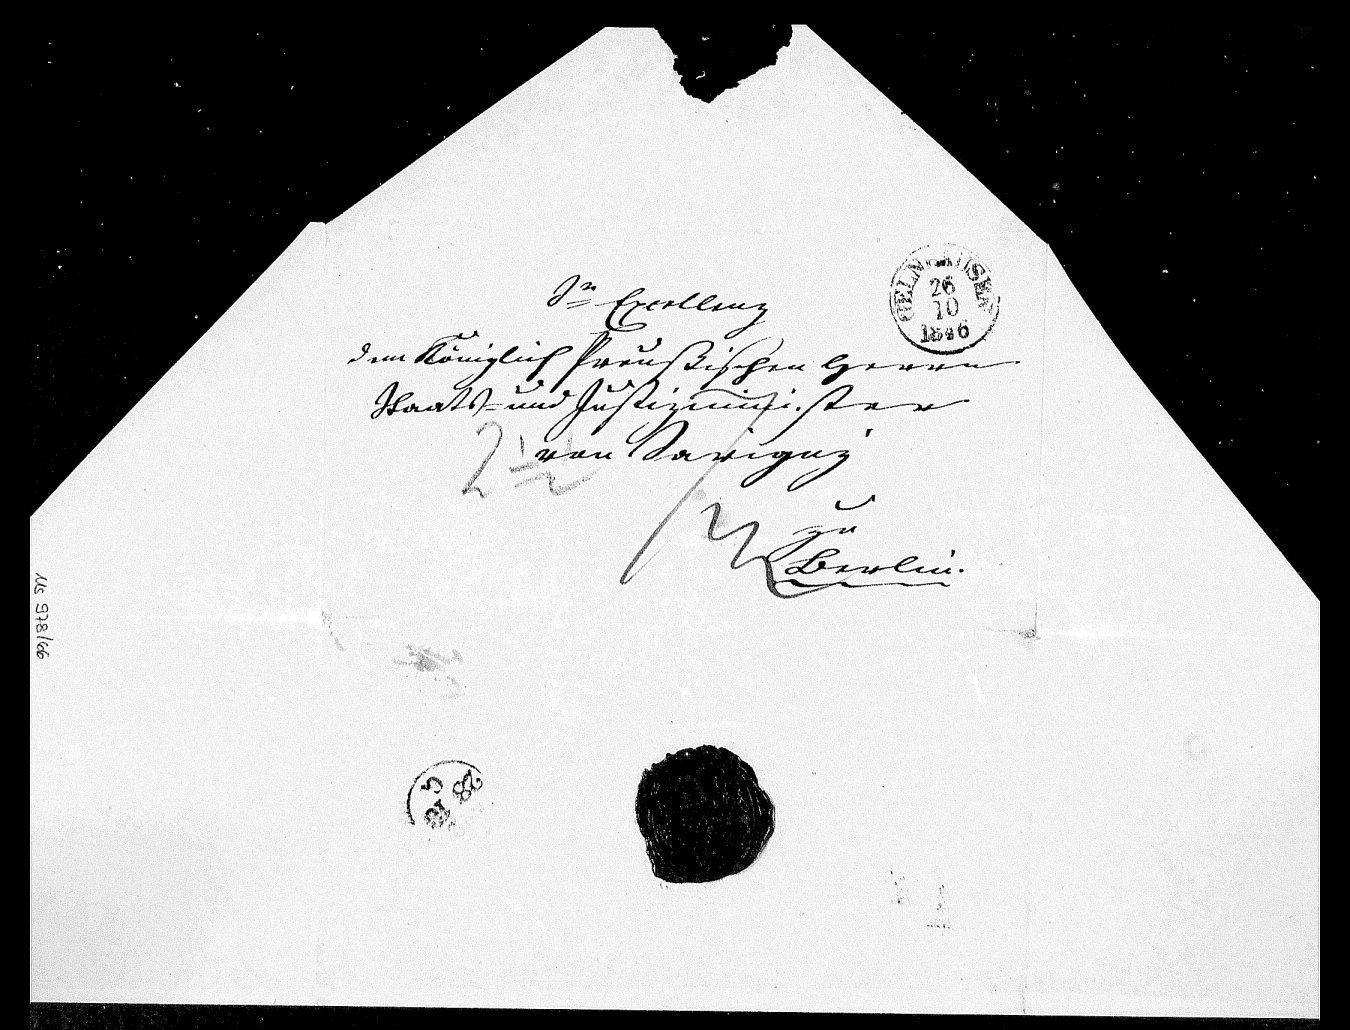 Sr Excellenz
dem Königlich Preußischen Herrn
Staats- und Justizminister
von Savigny
zu
Berlin.
2 1/2
GELNHAUSEN
26
10
1846
Ms 978/66
28